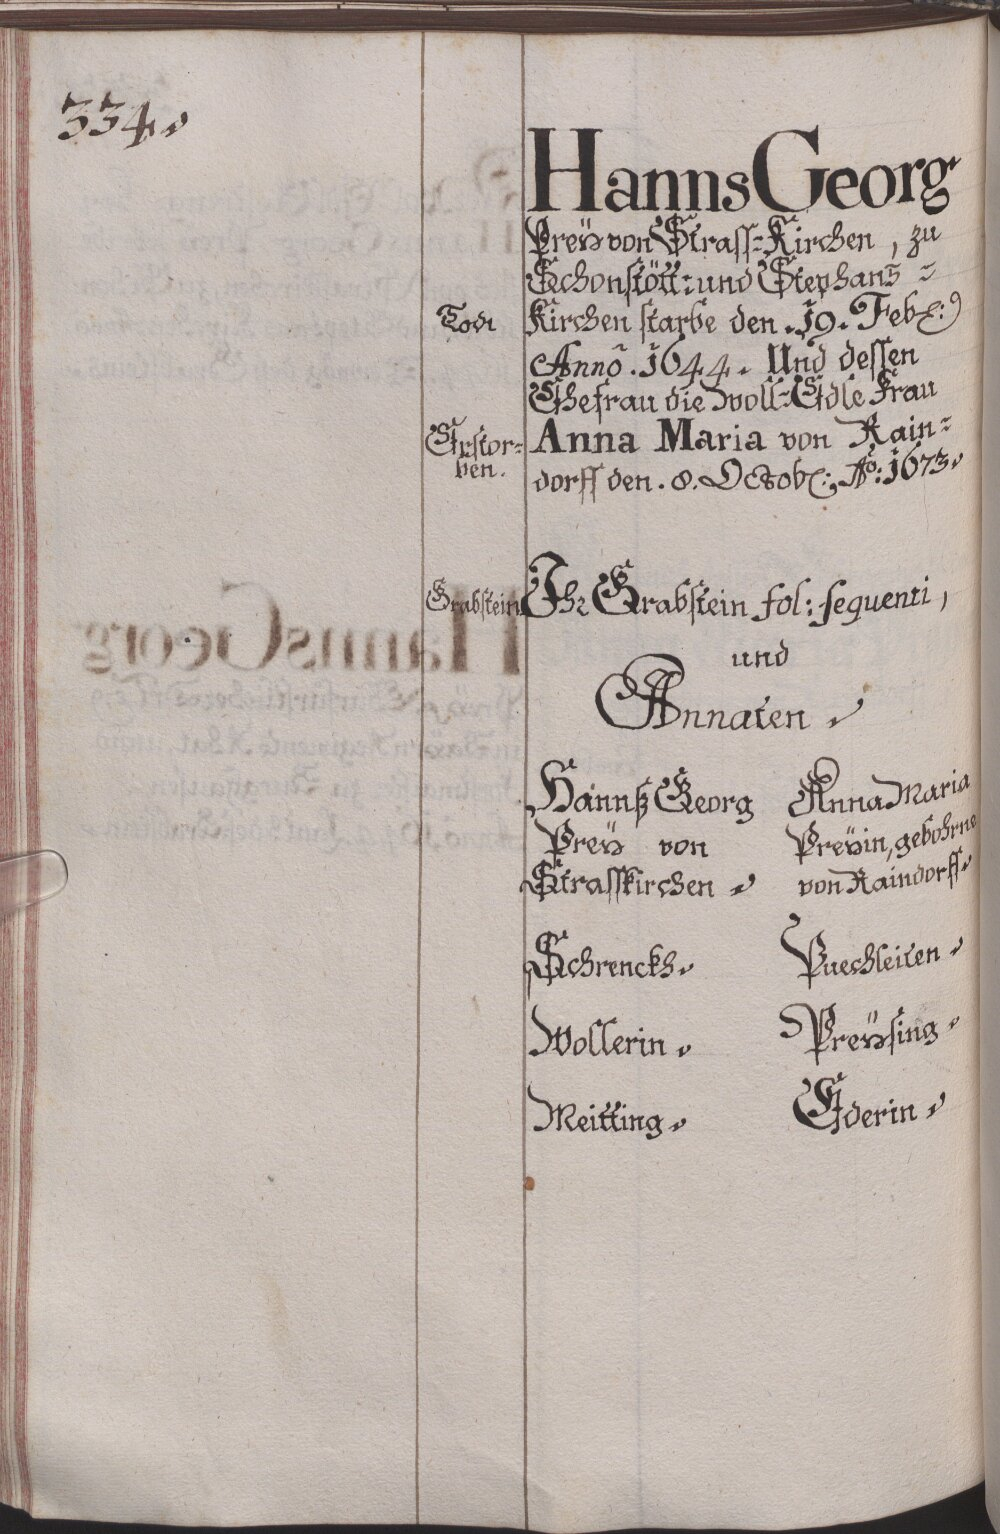 334.
Hanns Georg
Preÿ von Strass=Kirchen, zu
Schonstött: und Stephans=
Todt
Kirchen starbe den .19. Feb:
Anno .1644. Und dessen
Ehefrau die Woll=Edle Frau
Erstor=
ben.
Anna Maria von Rain=
dorff den .8. Octob: Aō: 1673.
Grabstein
Ihr Grabstein fol: sequenti,
und
Annaten
Hannß Georg
Preÿ von
Strasskirchen
Anna Maria
Preÿin, gebohrne
von Raindorff
Schrenckh
Puechleiten
Wollerin
Preÿsing
Meitting
Ederin